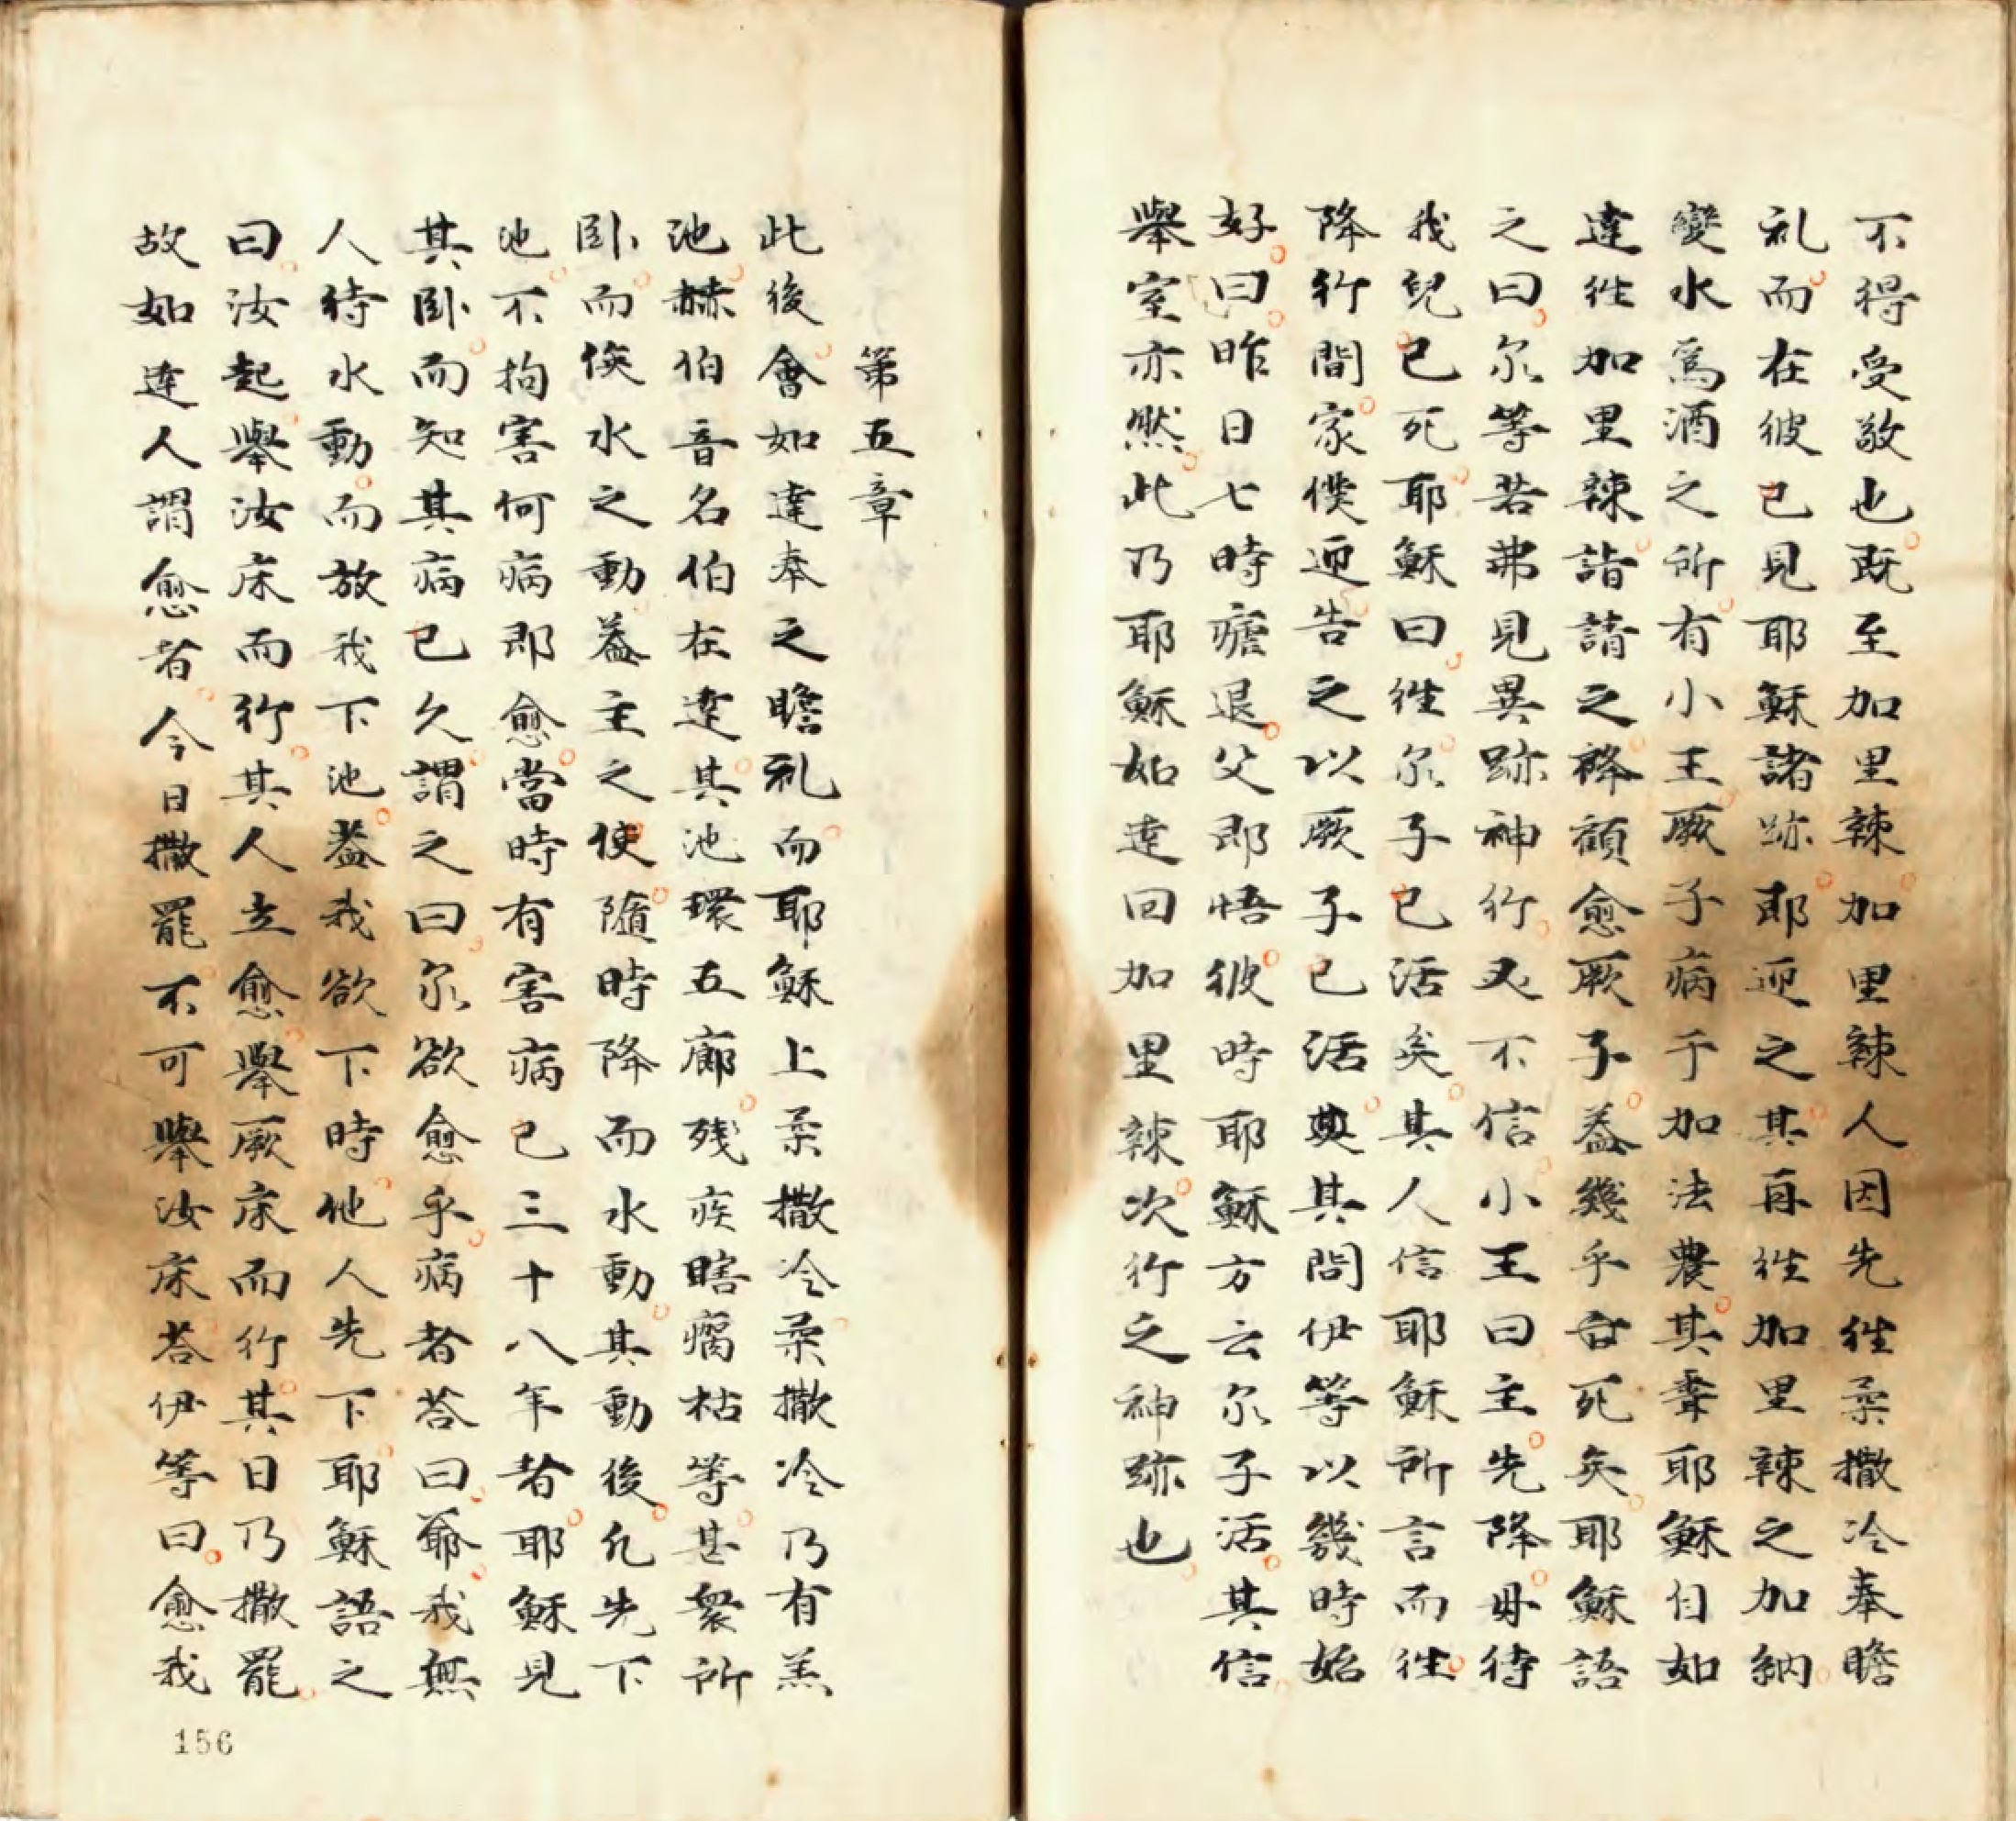 不得受敬也既至加里辣加里辣人因先徃柔撒冷奉瞻
礼而在彼已見耶穌諸跡即迎之其再徃加里辣之加納
變水爲酒之所有小王厥子病于加法農其聞耶穌自如
達徃加里辣詣請之降顧愈厥子葢幾乎台死矣耶穌語
之曰尔等若弗見異跡神行又不信小王曰主先降毋待
我兒已死耶穌曰徃尔子已活矣其人信耶穌所言而徃
降行間家僕迎告之以厥子已活與其問伊等以幾時始
好曰昨日七時瘧退父即悟彼時耶穌方云尔子活其信
舉室亦然此乃耶穌如達回加里辣次行之神跡也
第五章
此後會如達奉之瞻礼而耶穌上柔撒冷柔撒冷乃有羔
池赫伯音名伯在達其池環五廊殘疾瞎瘸枯等甚衆所
臥而俟水之動葢主之使隨時降而水動其動後凢先下
池不拘害何病即愈當時有害病已三十八年者耶穌見
其臥而知其病已久謂之曰尔欲愈乎病者荅曰爺我無
人待水動而放我下池葢我欲下時他人先下耶穌語之
曰汝起舉汝床而行其人立愈舉厥床而行其日乃撒罷
故如達人謂愈者今日撒罷不可舉汝床荅伊等曰愈我
156